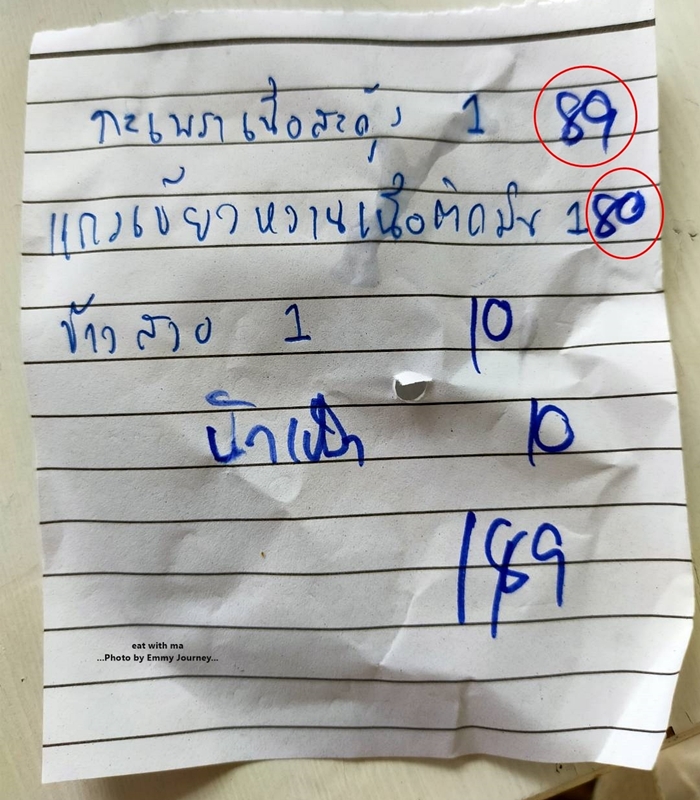 กะเพราเนื้อสะดุ้ง 1 89
แกงเขียวหวานเนื้อติดมัน 1 80
ข้าวสวย 1 10
น้ำแข็ง 10
189
eat with ma
...Photo by Emmy Journey...